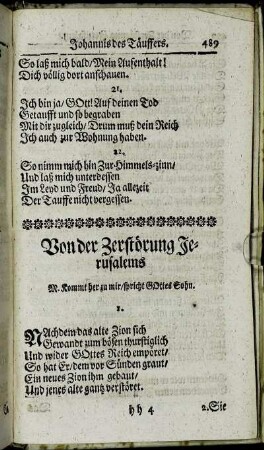 Johannis des Täuffers. 489
So laß mich bald/ Mein Aufenthalt!
Dich völlig dort anschauen.
21.
Ich bin ja/ GOtt! Auf deinen Tod
Getaufft und so begraben
Mit dir zugleich/ Drum muß dein Reich
Ich auch zur Wohnung haben.
22.
So nimm mich hin Zur Himmels-zinn/
Und laß mich unterdessen
Im Leyd und Freud/ Ja allezeit
Der Tauffe nicht vergessen.
Von der Zerstörung Je-
rusalems
M. Kommt her zu mir/ spricht GOttes Sohn.
1.
NAchdem das alte Zion sich
Gewandt zum bösen thurstiglich
Und wider GOttes Reich empöret/
So hat Er/ dem vor Sünden graut/
Ein neues Zion ihm gebaut/
Und jenes alte gantz verstöret.
hh 4 2. Sie